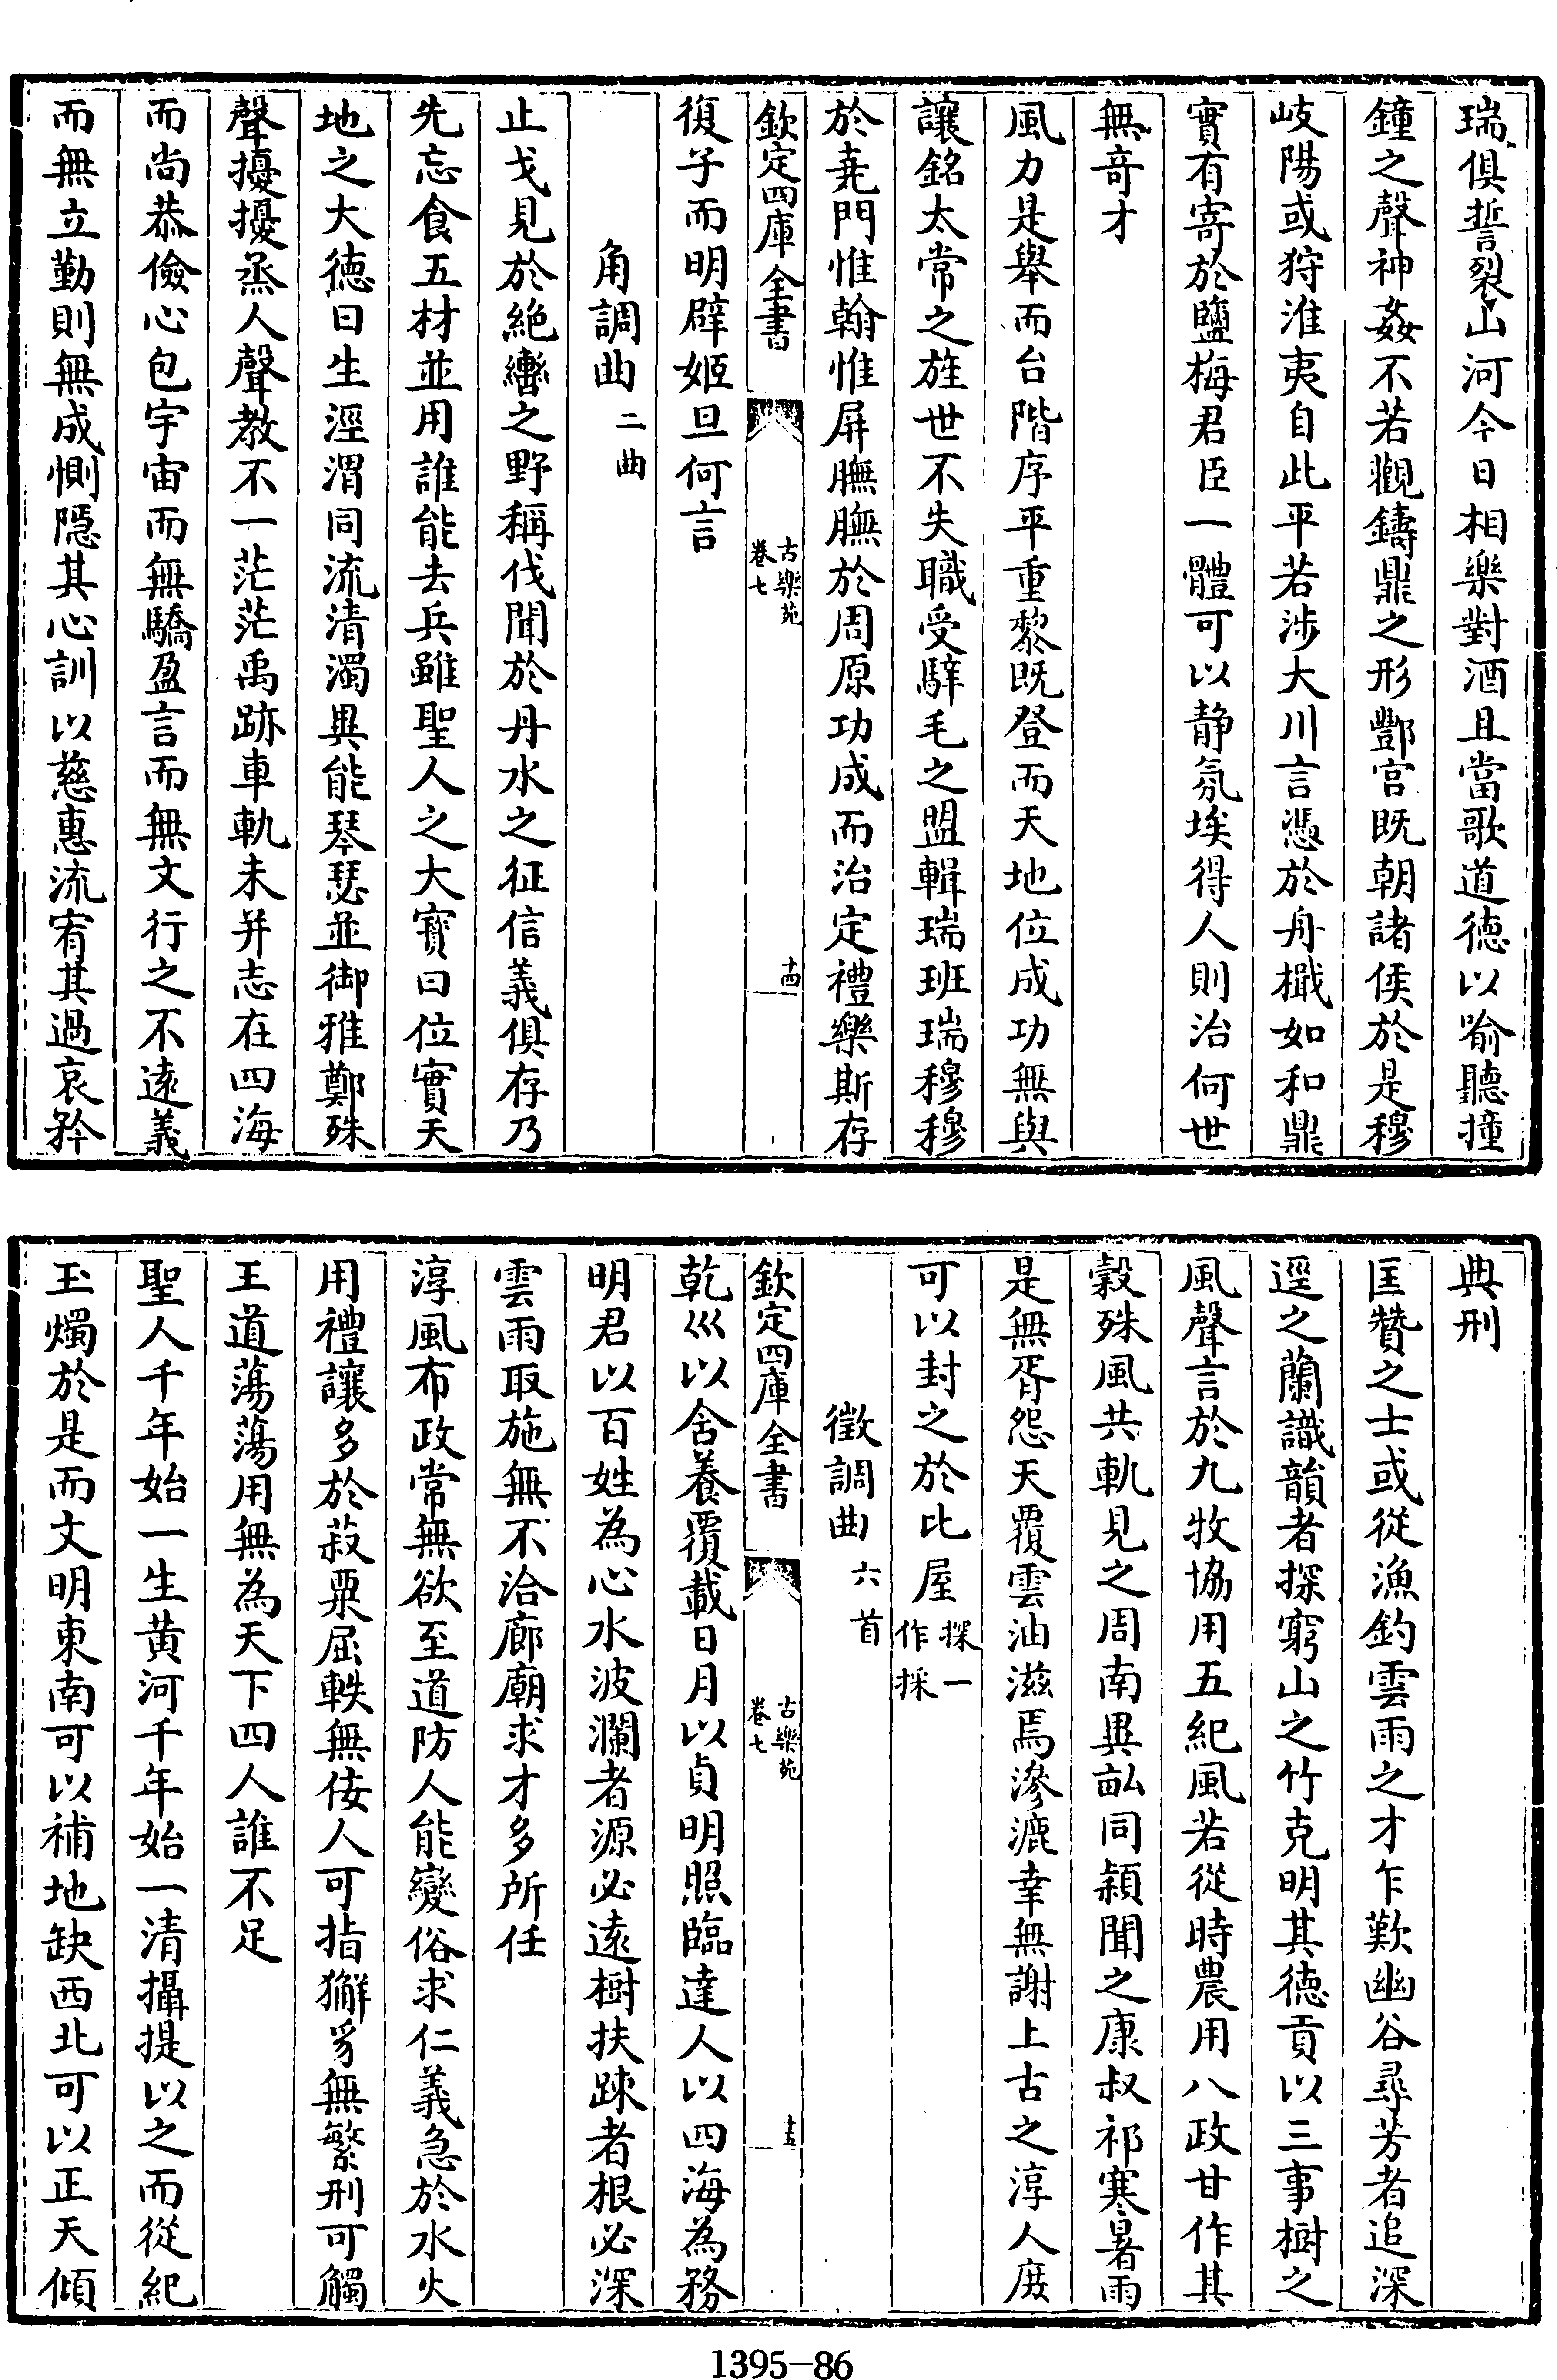 瑞俱誓裂山河今日相樂對酒且當歌道德以喻聽撞
鐘之聲神姦不若觀鑄鼎之形酆宫既朝諸侯於是穆
岐陽或狩淮夷自此平若涉大川言憑於舟檝如和鼎
實有寄於鹽梅君臣一體可以静氛埃得人則治何世
無竒才
風力是舉而台階序平重黎既登而天地位成功無與
讓銘太常之旌世不失職受騂毛之盟輯瑞班瑞穆穆
於堯門惟翰惟屏膴膴於周原功成而治定禮樂斯存
欽定四庫全書
古樂苑
卷七
十四
復子而明辟姬旦何言
角調曲二曲
止戈見於絶轡之野稱伐聞於丹水之征信義俱存乃
先忘食五材並用誰能去兵雖聖人之大寳曰位實天
地之大德曰生涇渭同流清濁異能琴瑟並御雅鄭殊
聲擾擾烝人聲教不一茫茫禹跡車軌未并志在四海
而尚恭儉心包宇宙而無驕盈言而無文行之不遠義
而無立勤則無成惻隱其心訓以慈惠流宥其過哀矜
典刑
匡贊之士或從漁釣雲雨之才乍歎幽谷尋芳者追深
逕之蘭識韻者探窮山之竹克明其德貢以三事樹之
風聲言於九牧協用五紀風若從時農用八政甘作其
穀殊風共軌見之周南異畝同穎聞之康叔祁寒暑雨
是無胥怨天覆雲油滋焉滲漉幸無謝上古之淳人庻
可以封之於比屋探一作採
徵調曲六首
欽定四庫全書
古樂苑
卷七
十五
乾巛以含養覆載日月以貞明照臨達人以四海為務
明君以百姓為心水波瀾者源必遠樹扶踈者根必深
雲雨取施無不洽廊廟求才多所任
淳風布政常無欲至道防人能變俗求仁義急於水火
用禮讓多於菽粟屈軼無佞人可指獬豸無繁刑可觸
王道蕩蕩用無為天下四人誰不足
聖人千年始一生黄河千年始一清攝提以之而從紀
玉燭於是而文明東南可以補地缺西北可以正天傾
1395—86